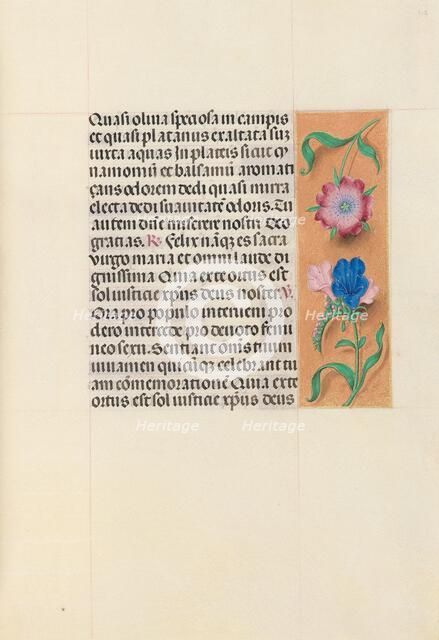 Quasi oliua speciosa in campis
et quasi platanus exaltata suz
iuxta aquas In plateis sicut cy
namomũ et balsamũ aromati
çans odorem dedi quasi mirra
electa dedi suauitatẽ odoris. Tu
autem dñe miserere nostri Deo
gracias. R. Felix nãq; es sacra
virgo maria et omni laude di
gnissima Quia ex te ortus est
sol iusticie xp̃us deus noster. V.
Ora pro populo interueni pro
clero intercede pro deuoto femi
neo sexu. Sentiant om̃s tuum
iuuamen quicũq; celebrant tu
am cõmemorationẽ Quia ex te
ortus est sol iusticie xp̃us deus
Heritage
Heritage
Heritage
Heritage
Heritage
Heritage